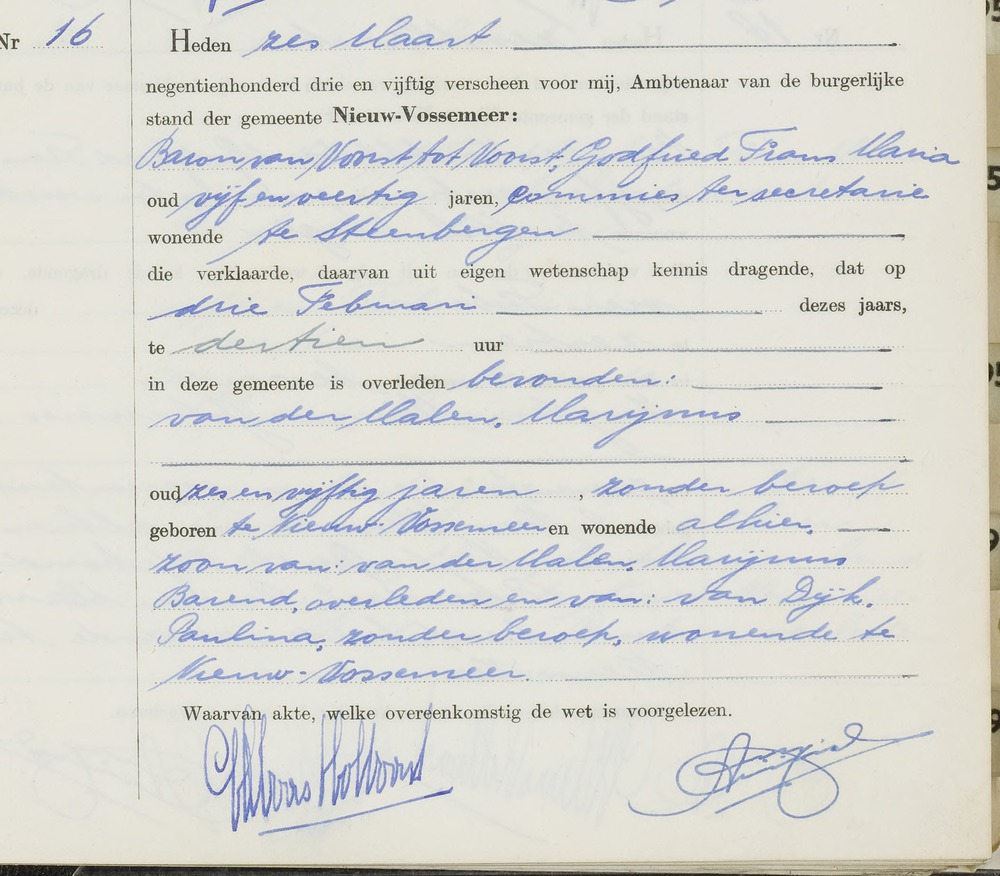 Nr 16
Heden zes Maart
negentienhonderd drie en vijftig verscheen voor mij, Ambtenaar van de burgerlijke
stand der gemeente Nieuw-Vossemeer:
Baron van Voorst tot Voorst, Godfried Frans Maria
oud vijf en veertig jaren, commies ter secretarie
wonende te Steenbergen
die verklaarde, daarvan uit eigen wetenschap kennis dragende, dat op
drie Februari dezes jaars,
te dertien uur
in deze gemeente is overleden bevonden:
van der Malen, Marijnus
oud zes en vijftig jaren, zonder beroep
geboren te Nieuw-Vossemeer en wonende alhier,
zoon van: van der Malen, Marijnus
Barend, overleden en van: van Dijk,
Paulina, zonder beroep, wonende te
Nieuw-Vossemeer.
Waarvan akte, welke overeenkomstig de wet is voorgelezen.